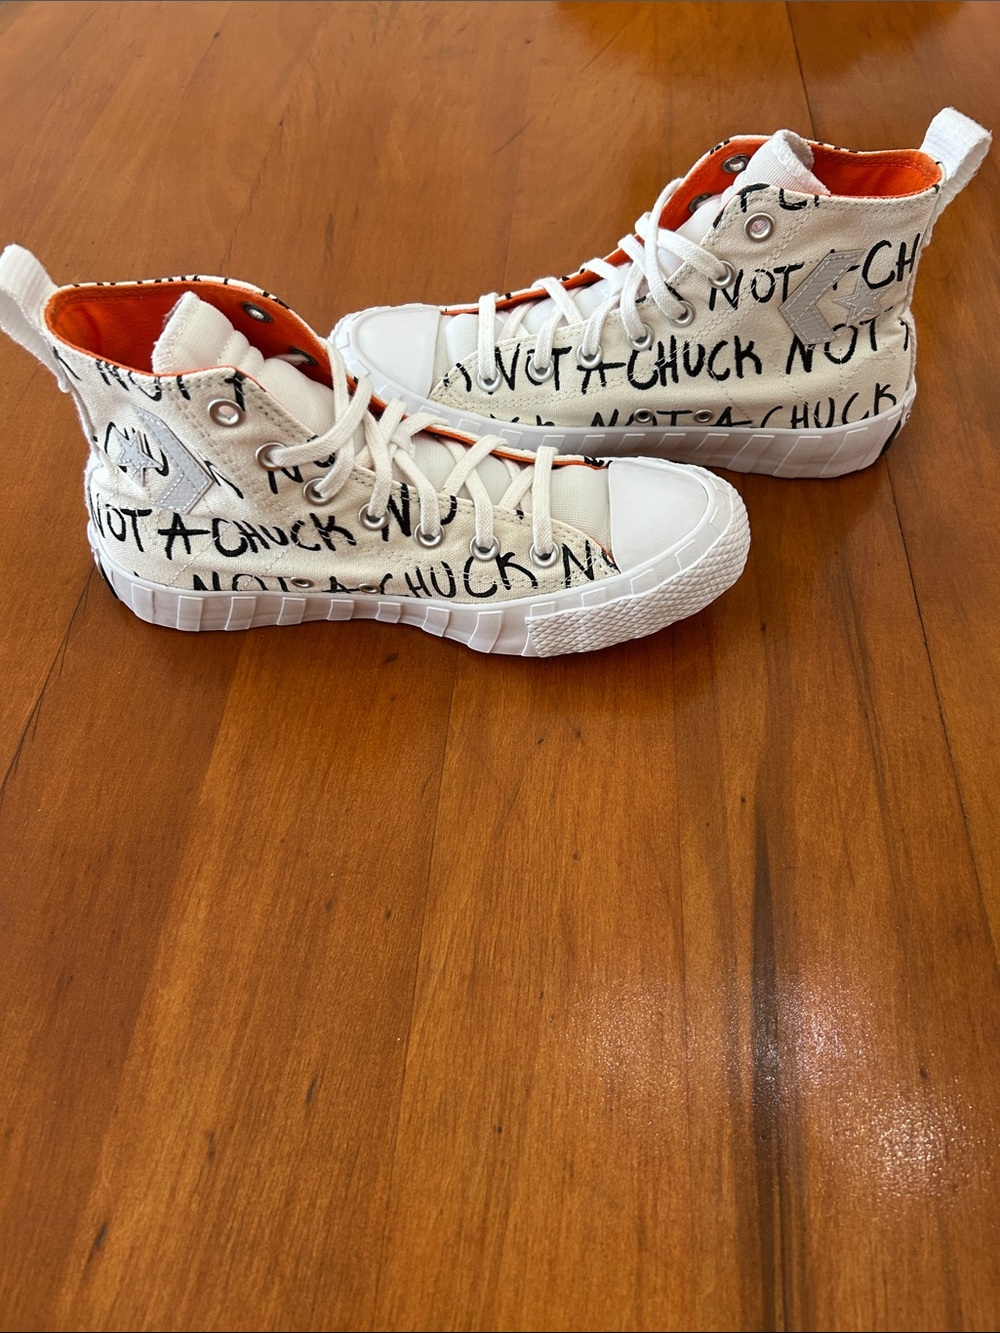 NOT A
NOT A-CHUCK NO
NOT A-CHUCK NO
NOT A-CH
NOT A-CHUCK NOT
NOT A-CHUCK